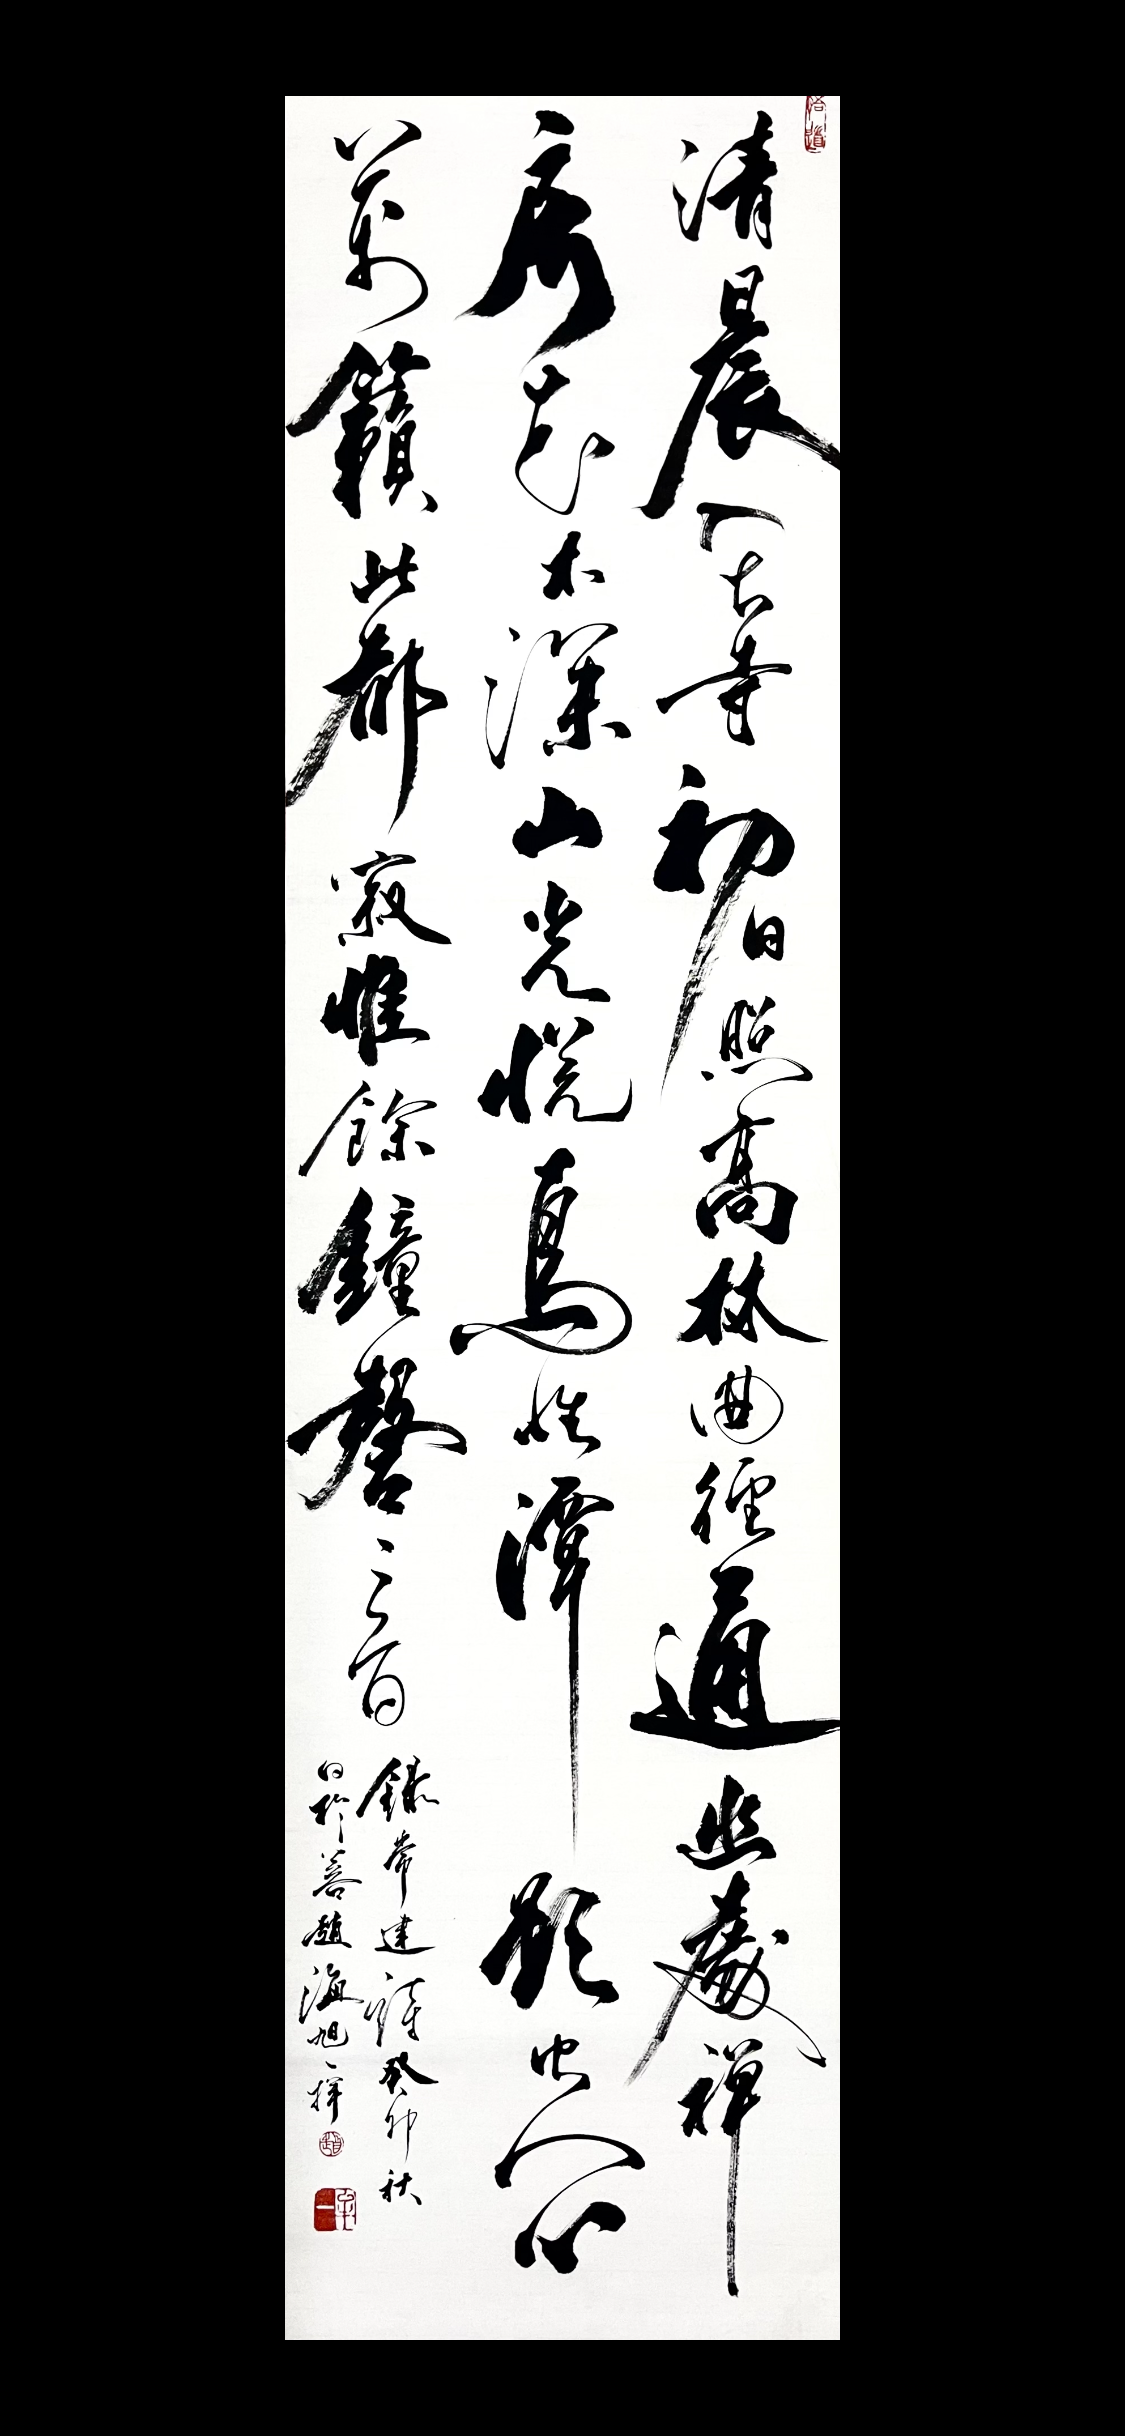 清晨入古寺初日照高林曲徑通幽處禪
房花木深山光悅鳥性潭影空人心
萬籟此都寂惟餘鐘磬之音
錄常建詩癸卯秋
日於 趙海旭